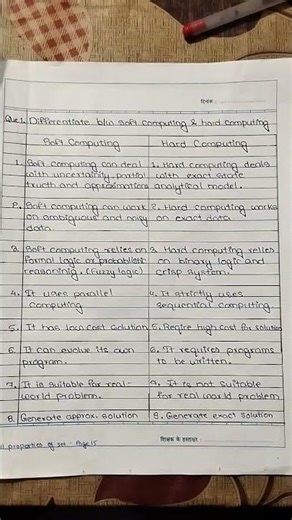 दिनांक :
Que 1. Differentiate b/w Soft Computing & hard Computing
Soft Computing
Hard Computing
1. Soft computing can deal
with uncertainity, partial
truth and approximations
1. Hard computing deals
with exact state
analytical model.
2. Soft computing can work
on ambiguous and noisy
data.
2. Hard computing works
on exact data
3. Soft computing relies on
formal logic or probablistic
reasoninig. (Fuzzy logic)
3. Hard computing relies
on binary logic and
crisp system.
4. It uses parallel
Computing
4. It strictly uses
sequential computing
5. It has low cost solution
5. Reqire high cost for solution
6. It can evolve its own
program.
6. It requires programs
to be written.
7. It is suitable for real-
world problem.
7. It is not suitable
for real world problem
8. Generate approx. solution
8. Generate exact solution
properties of set - Page 15
शिक्षक के हस्ताक्षर :